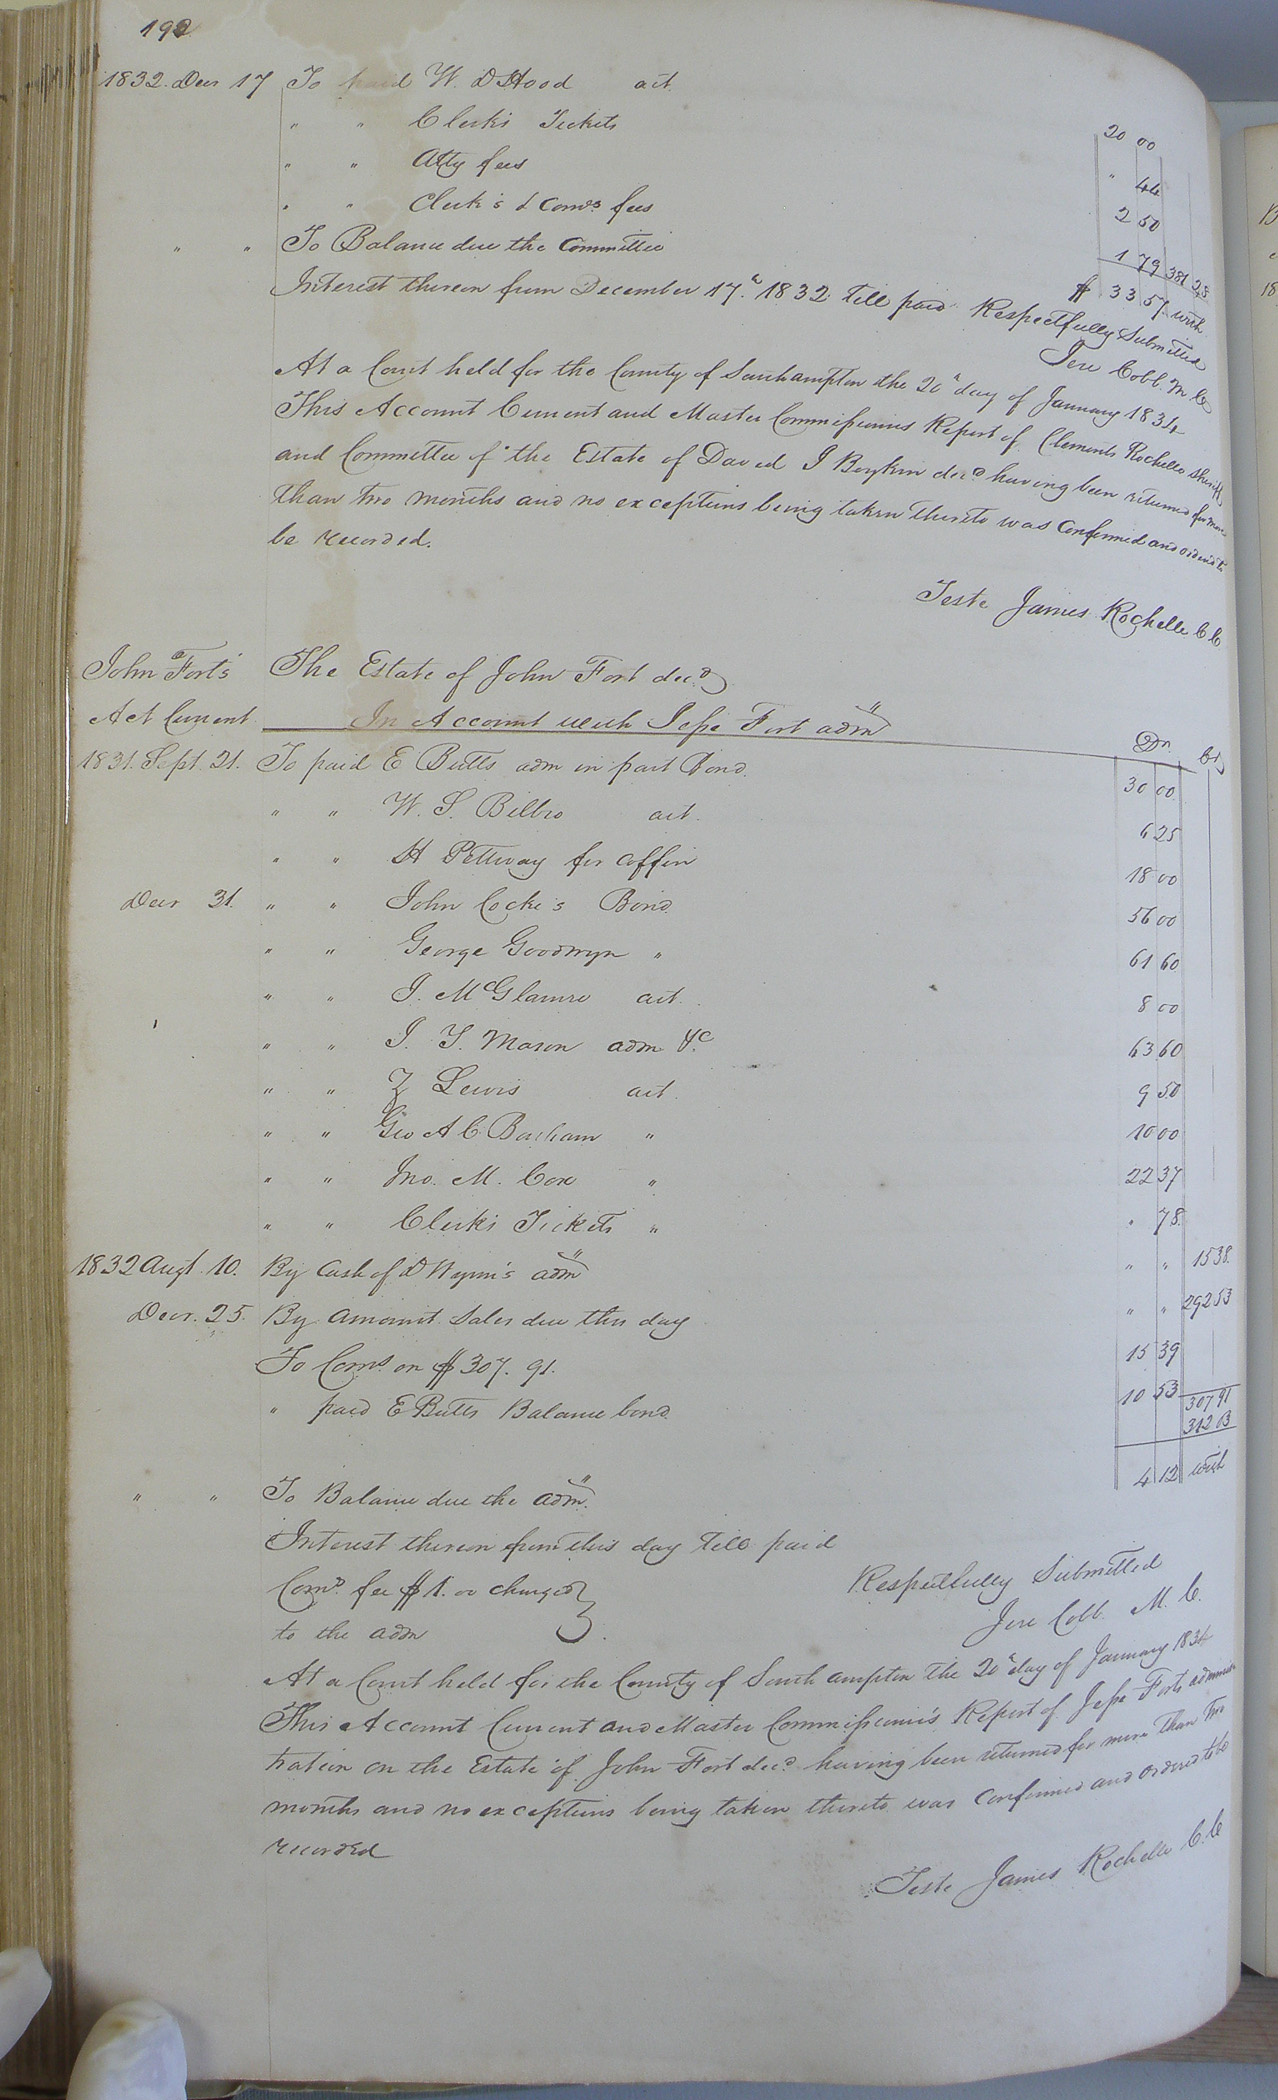 192
1832. Decr 17 To paid W. D Hood act. 20 00
" " Clerk's Tickets " 44
" " Atty fees 2 50
" " Clerk's & Coms fees 1 79 381 28
" " To Balance due the Committee $ 33 57. with
Interest thereon from December 17.h 1832 till paid Respectfully Submitted
Jere Cobb. M C
At a Court held for the County of Southampton the 20h day of January 1834
This Account Current and Master Commissioners Report of Clements Rochelle Sheriff
and Committee of the Estate of David J Boykin decd having been returned for more
than two months and no exceptions being taken thereto was Confirmed and ordered to
be recorded.
Teste James Rochelle C C
John Fort's The Estate of John Fort decd
Act Current In Account with Jesse Fort adm Dr. Cr
1831. Sept. 21. To paid E Butts adm in part Bond. 30 00
" " W. S. Bilbro act. 6 25
" " H Pettway for coffin 18 00
Decr 31. " " John Cocke's Bond 56 00
" " George Goodwyn " 61 60
" " J. McGlamre act. 8 00
" " J. Y. Mason adm &c. 63 60
" " Z Lewis act. 9 50
" " Geo A C Barham " 10 00
" " Jno. M. Cox " 22 37
" " Clerk's Tickets " " 78.
1832 Augt. 10. By Cash of D Wynn's adm " " 15 38.
Decr. 25. By amount Sales due this day " " 292 53
To Coms. on $307. 91. 15 39
" paid E Butts Balance bond. 10 53 307 91
312 03
" " To Balance due the adm. 4 12 with
Interest thereon from this day till paid
Comr. fee $1. 00 charged Respectfully Submitted
to the adm Jere Cobb. M. C.
At a Court held for the County of Southampton the 20h day of January 1834
This Account Current and Master Commissioner's Report of Jesse Forts adminis
tration on the Estate of John Fort decd. having been returned for more than two
months and no exceptions being taken thereto was Confirmed and ordered to be
recorded
Teste James Rochelle C. C